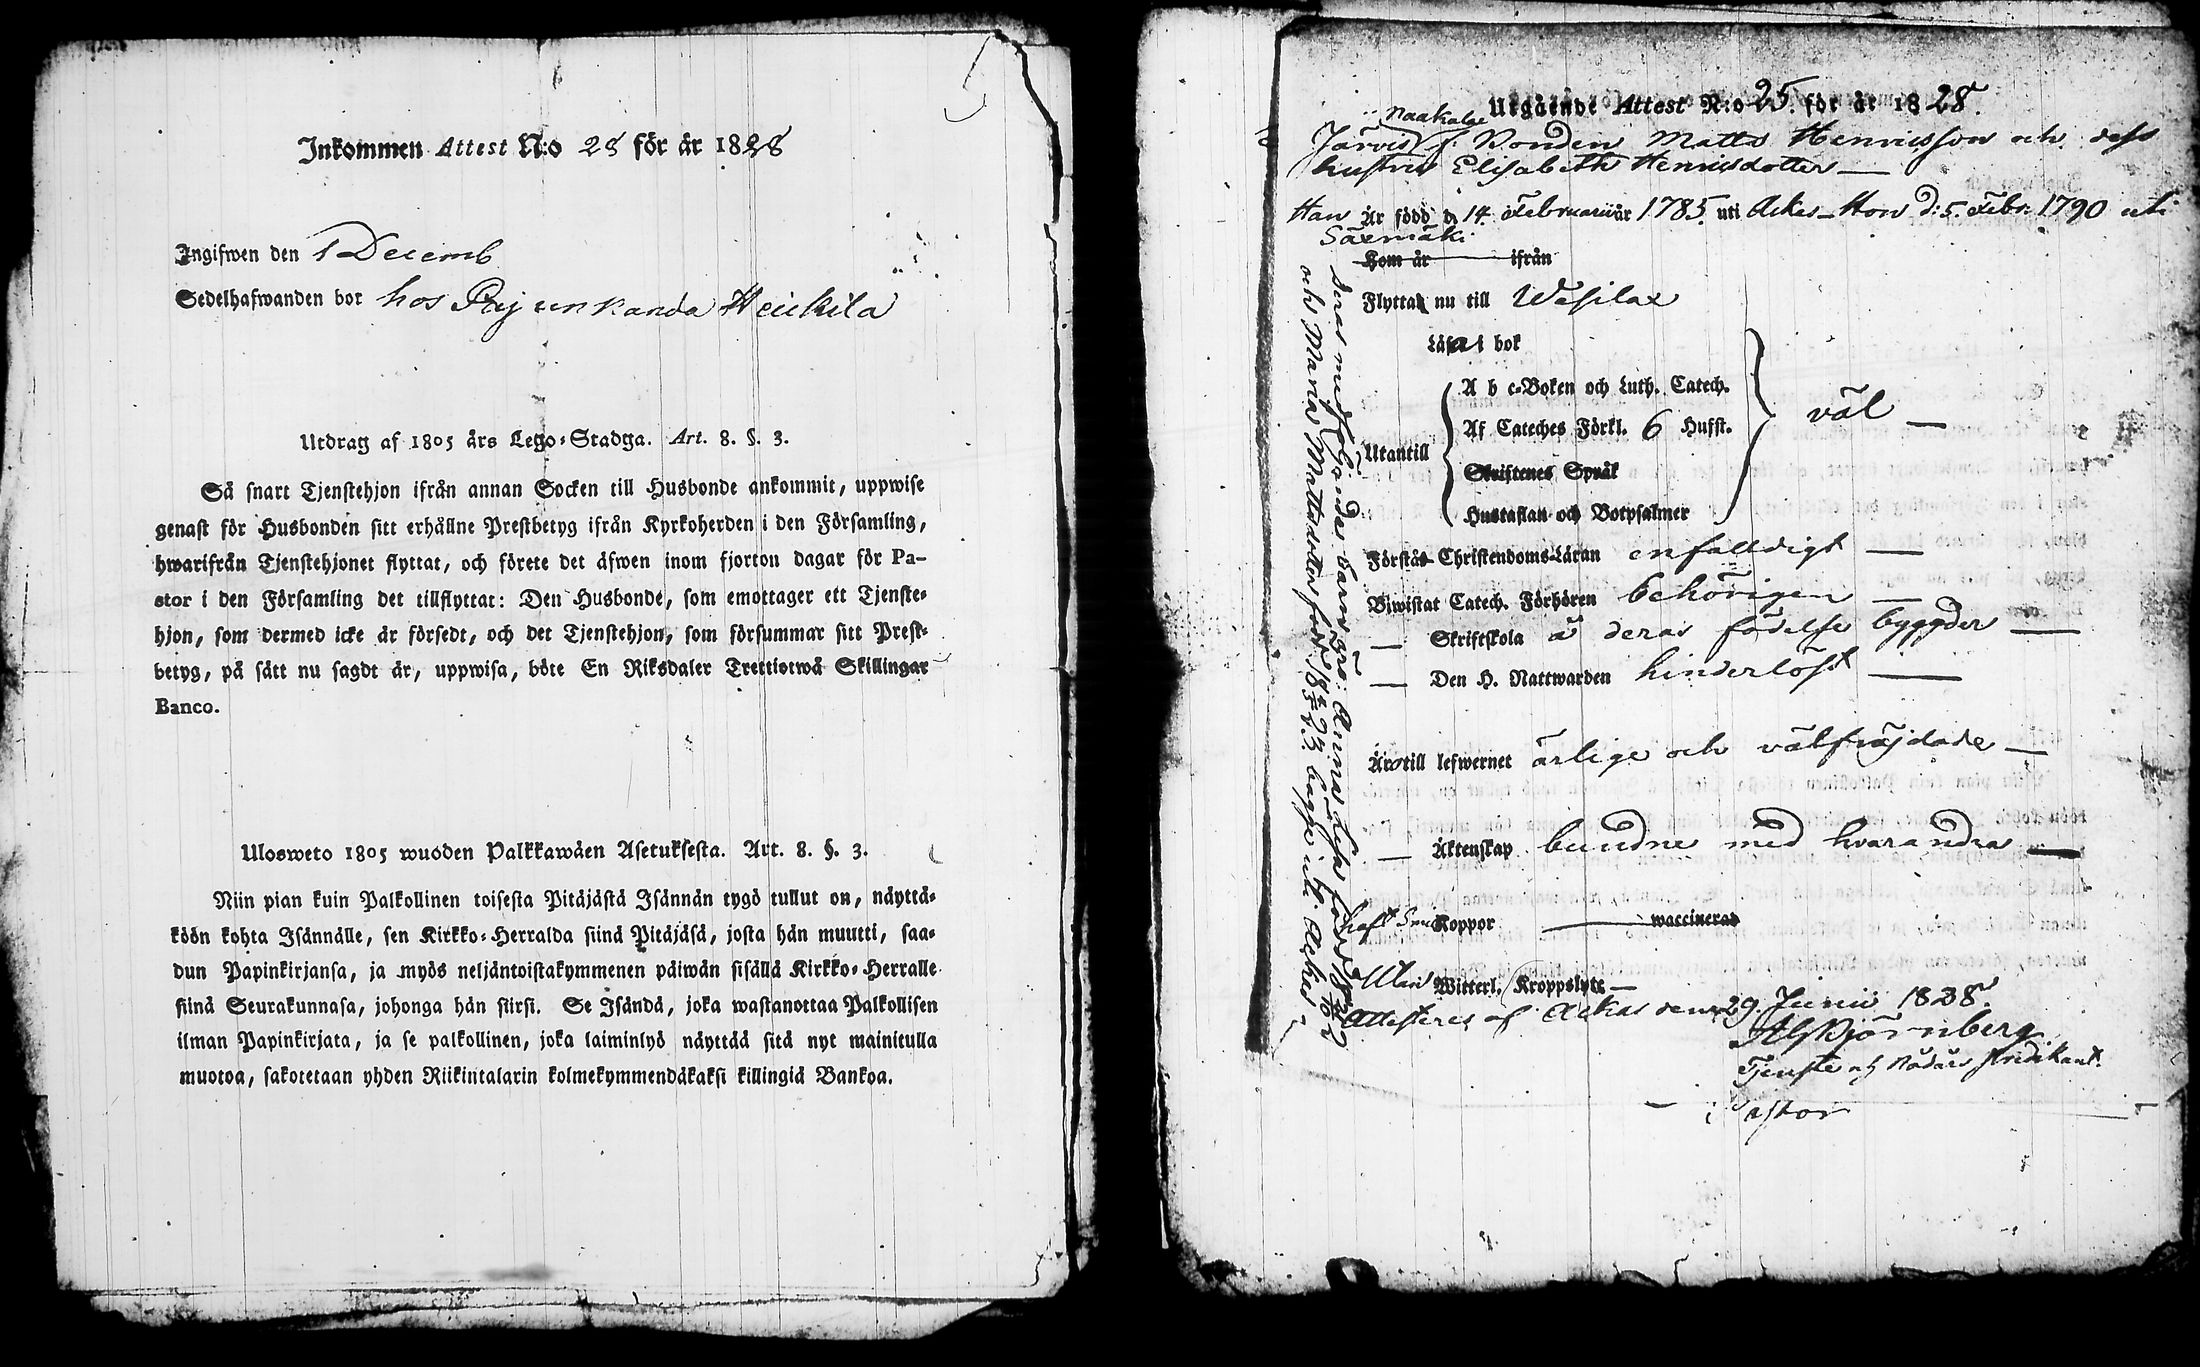 Inkommen Attest N:o 28 för år 1828
Ingifwen den 1 Decemb
Sedelhafwanden bor hos Heickila
Utdrag af 1805 års Lego-Stadga. Art. 8. §. 3.
Så snart Tjenstehjon ifrån annan Socken till Husbonde ankommit, uppwise
genast för Husbonden sitt erhållne Prestbetyg ifrån Kyrkoherden i den Församling,
hwarifrån Tjenstehjonet flyttat, och förete det äfwen inom fjorton dagar för Pa-
stor i den Församling det tillflyttat: Den Husbonde, som emottager ett Tjenste-
hjon, som dermed icke är försedt, och det Tjenstehjon, som försummar sitt Prest-
betyg, på sätt nu sagdt är, uppwisa, böte En Riksdaler Trettiotwå Skillingar
Banco.
Ulosweto 1805 wuoden Palkkawäen Asetuksesta. Art. 8. §. 3.
Niin pian kuin Palkollinen toisesta Pitäjästä Isännän tygö tullut on, näyttä-
köön kohta Isännälle, sen Kirkko-Herralda siinä Pitäjäsä, josta hän muutti, saa-
dun Papinkirjansa, ja myös neljäntoistakymmenen päiwän sisällä Kirkko-Herralle
siinä Seurakunnasa, johonga hän siirsi. Se Isändä, joka wastanottaa Palkollisen
ilman Papinkirjata, ja se palkollinen, joka laiminlyö näyttää sitä nyt mainitulla
muotoa, sakotetaan yhden Riikintalarin kolmekymmendäkaksi killingiä Bankoa.
Utgående Attest N:o 25. för år 1828.
Naakalae
Järvis Bonden Matts Henricsson och dess
hustru Elisabeth Henricsdotter
Han Är född d. 14 Februarii år 1785 uti Ackas - Hon d: 5. Febr: 1790 uti
Säxmäki
Hom är ifrån
Flyttat nu till Wesilax
Läsa i bok
A b c-Boken och Luth. Catech.
Af Cateches Förkl. 6 Hufst. väl
Utantill
Skriftenes Språk
Hustaflan och Botpsalmer
Förstås Christendoms-Läran enfalldigt
Biwistat Catech. Förhören behörigen
Skriftskola å deras födelse bygder
Den H. Nattwarden hinderlöst
Äro till lefwernet ärlige och välfräjdade
Äktenskap bundne med hvarandra
haft Koppor waccinerad
Utan Witterl. Kroppslyte
Attesteres af Ackas den 29. Junii 1828.
Tjenste och Nådårs Predikant.
Pastor
deras medföljande barn äro: Anna Lisa född
och Maria Mattsdotter född bägge uti Ackas